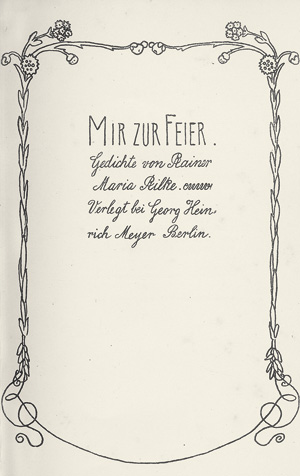 MIR ZUR FEIER.
Gedichte von Rainer
Maria Rilke.
Verlegt bei Georg Hein-
rich Meyer Berlin.